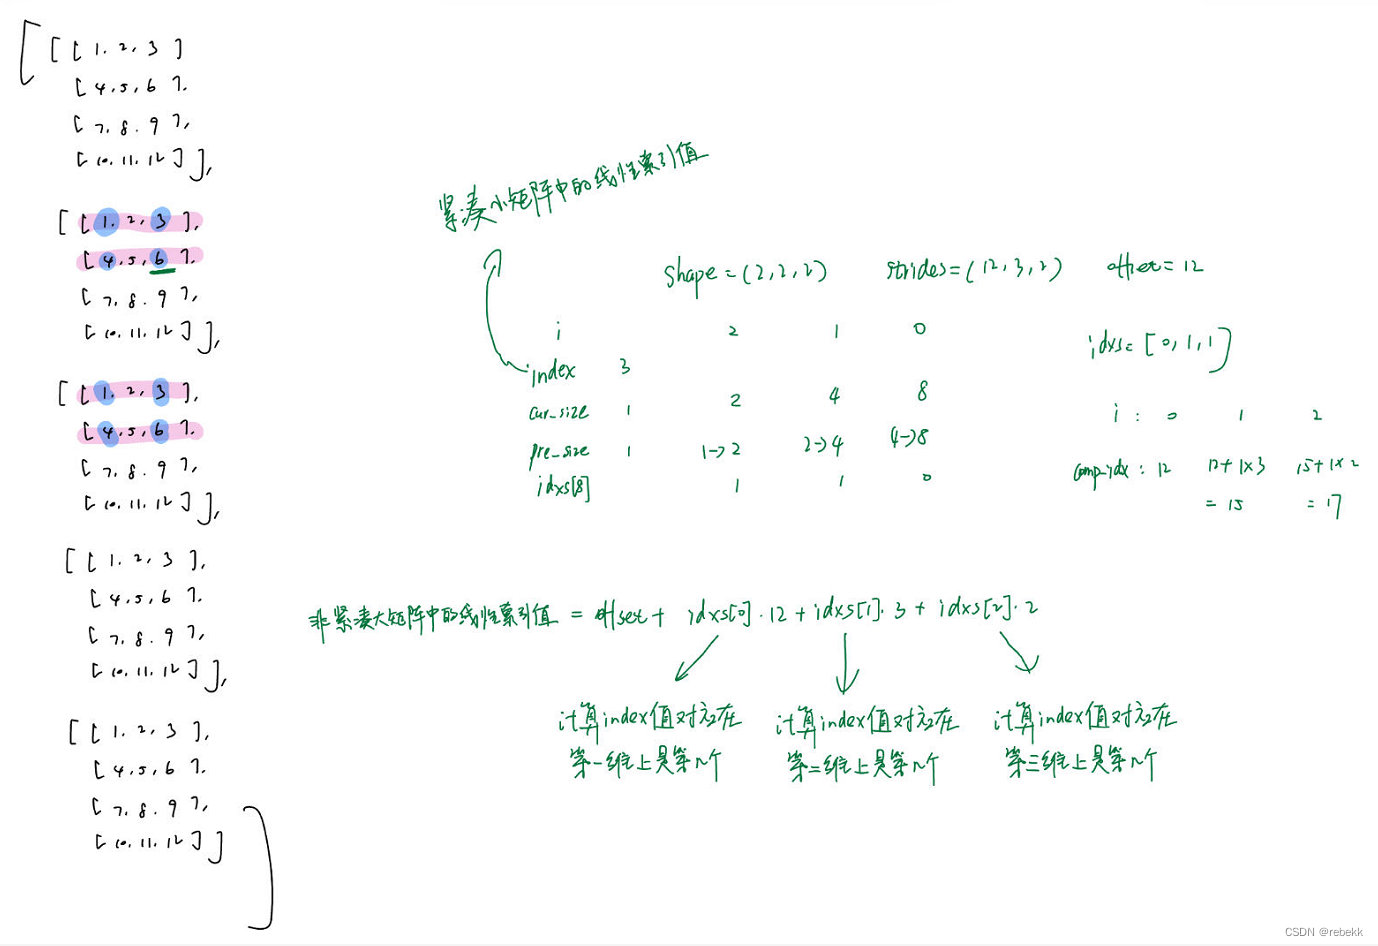 [ [ [ 1, 2, 3 ]
[ 4, 5, 6 ],
[ 7, 8, 9 ],
[ 10, 11, 12 ] ],
[ [ 1, 2, 3 ],
[ 4, 5, 6 ],
[ 7, 8, 9 ],
[ 10, 11, 12 ] ],
[ [ 1, 2, 3 ],
[ 4, 5, 6 ],
[ 7, 8, 9 ],
[ 10, 11, 12 ] ],
[ [ 1, 2, 3 ],
[ 4, 5, 6 ],
[ 7, 8, 9 ],
[ 10, 11, 12 ] ],
[ [ 1, 2, 3 ],
[ 4, 5, 6 ],
[ 7, 8, 9 ],
[ 10, 11, 12 ] ]
]
紧凑小矩阵中的线性索引值
shape=(2,2,2) strides=(12,3,2) offset=12
i 2 1 0
index 3
cur_size 1 2 4 8
pre_size 1 1->2 2->4 4->8
idxs[8] 1 1 0
idxs=[0,1,1]
i: 0 1 2
comp_idx: 12 12+1×3 15+1×2
=15 =17
非紧凑大矩阵中的线性索引值 = offset + idxs[0]·12 + idxs[1]·3 + idxs[2]·2
计算index值对应在
第一维上是第几个
计算index值对应在
第二维上是第几个
计算index值对应在
第三维上是第几个
CSDN @rebekk